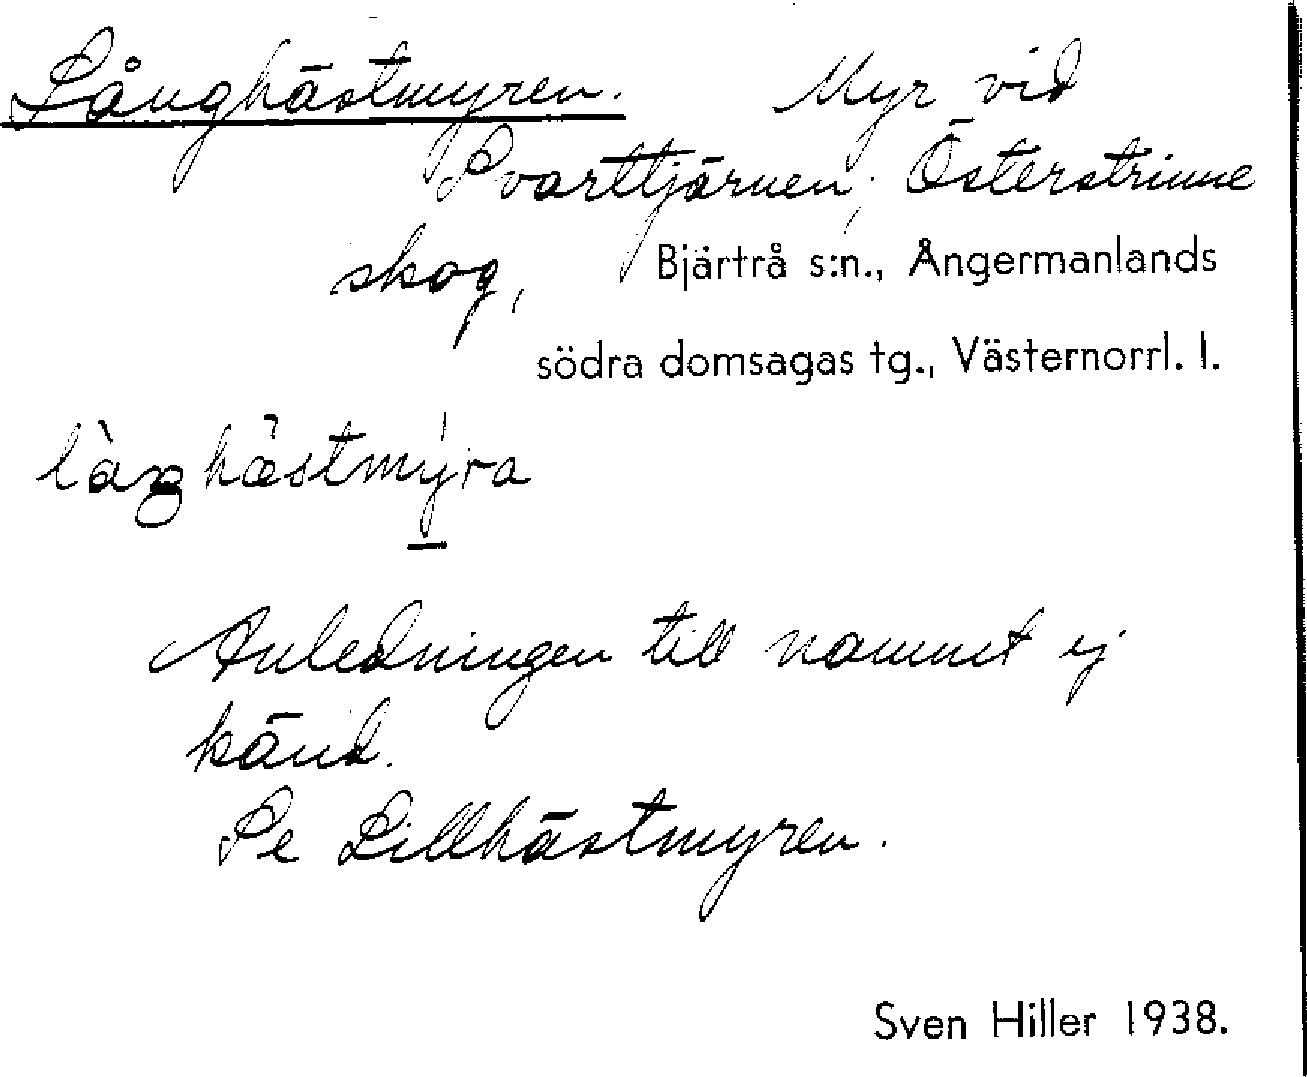 Långhästmyren. Myr vid
Svarttjärnen, Österstrinne
skog, Bjärtrå s:n., Ångermanlands
södra domsagas tg., Västernorrl. l.
làŋhæ̀stmýra
Anledningen till namnet ej
känd.
Se Lillhästmyren.
Sven Hiller 1938.